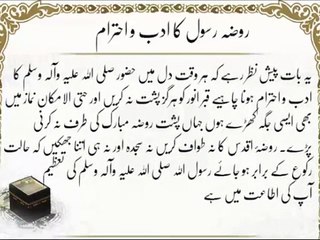 روضہ رسول کا ادب و احترام
یہ بات پیش نظر رہے کہ ہر وقت دل میں حضور صلی اللہ علیہ وآلہ وسلم کا
ادب و احترام ہونا چاہیے قبر انور کو ہرگز پشت نہ کریں اور حتی الامکان نماز میں
بھی ایسی جگہ کھڑے ہوں جہاں پشت روضہ مبارک کی طرف نہ کرنی
پڑے۔ روضۂ اقدس کا نہ طواف کریں نہ سجدہ اور نہ ہی اتنا جھکیں کہ حالت
رکوع کے برابر ہو جائے رسول اللہ صلی اللہ علیہ وآلہ وسلم کی تعظیم
آپ کی اطاعت میں ہے